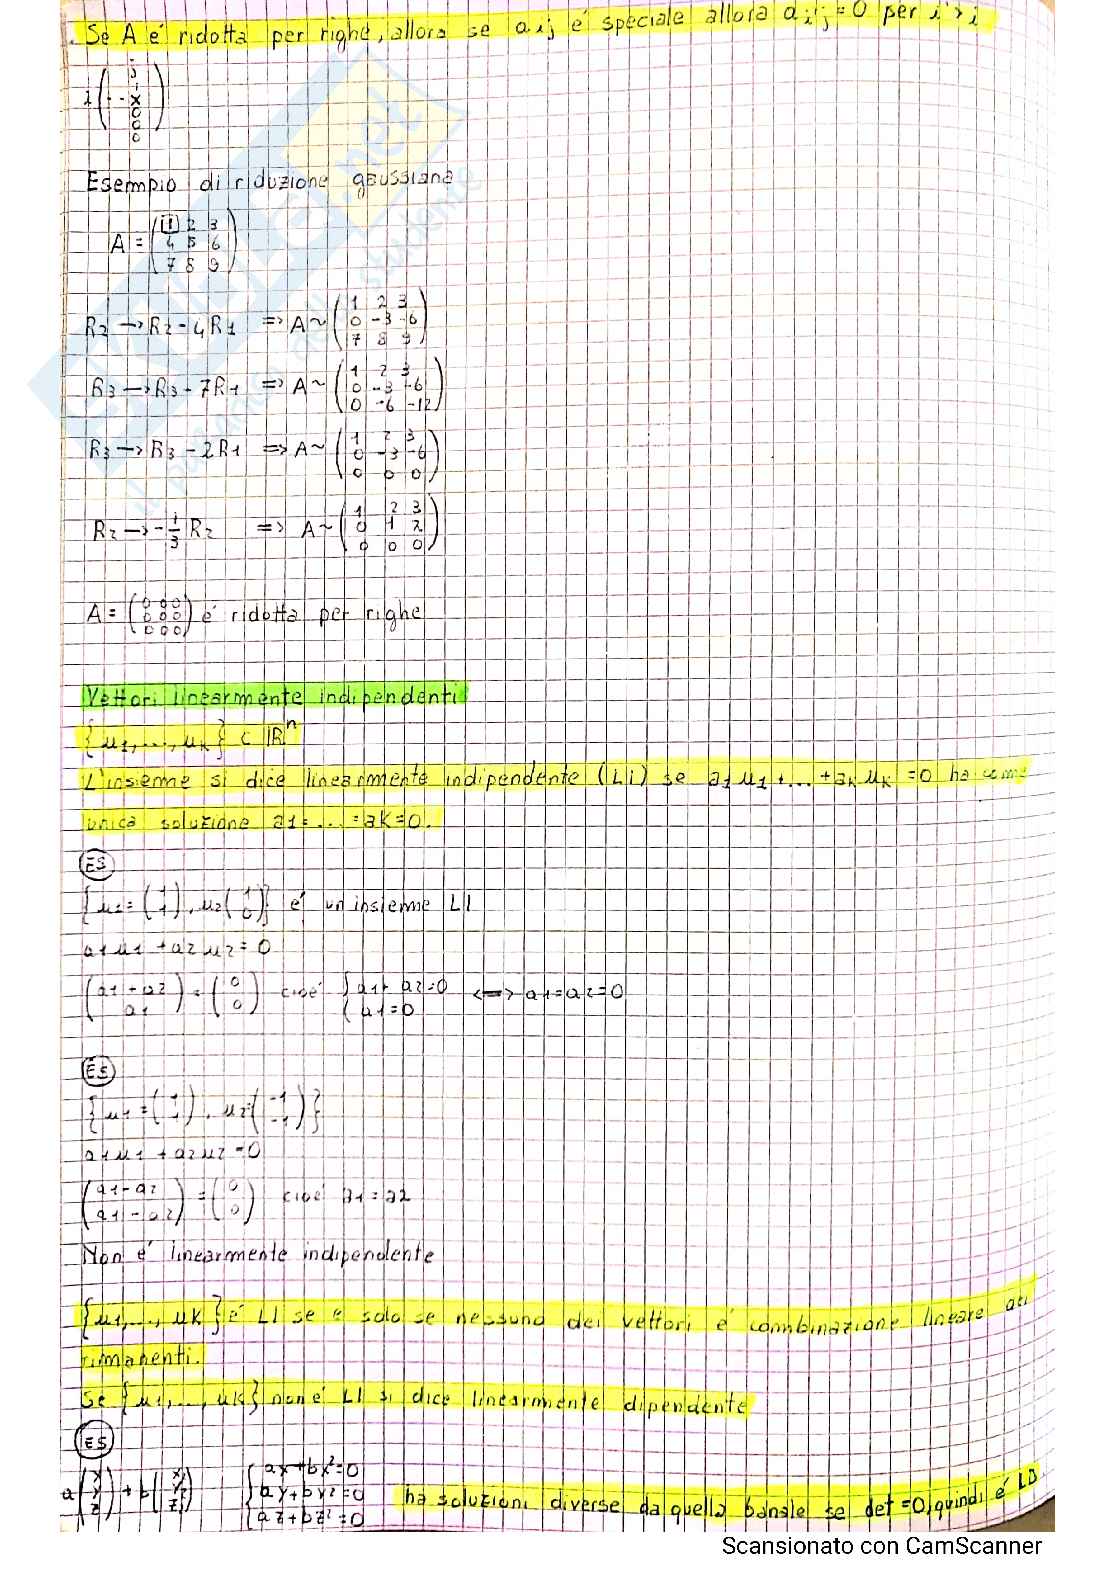 . Se A é ridotta per righe, allora se aij é speciale allora ai'j=0 per i'>i
j
i ( - - x 0 0 0 )
Esempio di riduzione gaussiana
A = ( 1 2 3
4 5 6
7 8 9 )
R2 → R2 - 4R1 => A ~ ( 1 2 3
0 -3 -6
7 8 9 )
R3 → R3 - 7R1 => A ~ ( 1 2 3
0 -3 -6
0 -6 -12 )
R3 → R3 - 2R1 => A ~ ( 1 2 3
0 -3 -6
0 0 0 )
R2 → -1/3 R2 => A ~ ( 1 2 3
0 1 2
0 0 0 )
A = ( 0 0 0
0 0 0
0 0 0 ) é ridotta per righe
Vettori linearmente indipendenti
{u1,...,uk} ⊂ ℝn
L'insieme si dice linearmente indipendente (Li) se a1u1+...+akuk=0 ha come
unica soluzione a1=...=ak=0.
ES
{u1=(1 1), u2(1 0)} é un insieme LI
a1u1+a2u2=0
(a1+a2 a1) = (0 0) cioé { a1+a2=0 <=> a1=a2=0
{ a1=0
ES
{u1=(1 1), u2(-1 -1)}
a1u1+a2u2=0
(a1-a2 a1-a2) = (0 0) cioé a1=a2
Non é linearmente indipendente
{u1,...,uk} é LI se e solo se nessuno dei vettori é combinazione lineare dei
rimanenti.
Se {u1,...,uk} non é LI si dice linearmente dipendente
ES
a(x y z) + b(x' y' z') { ax+bx'=0
ay+by'=0
az+bz'=0 ha soluzioni diverse da quella banale se det=0, quindi é LD
Scansionato con CamScanner